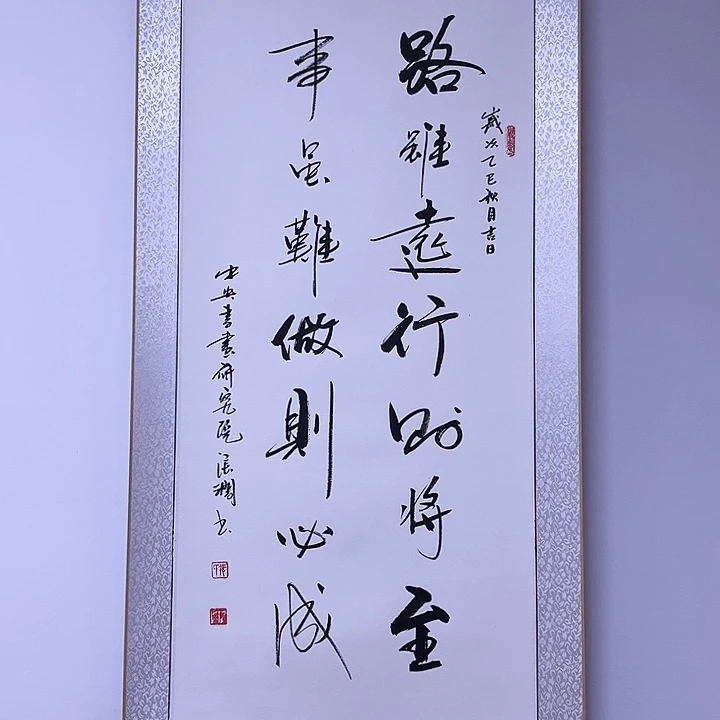 歲次乙巳秋月吉日
路雖遠行则将至
事虽難做則必成
中央書畫研究院張书